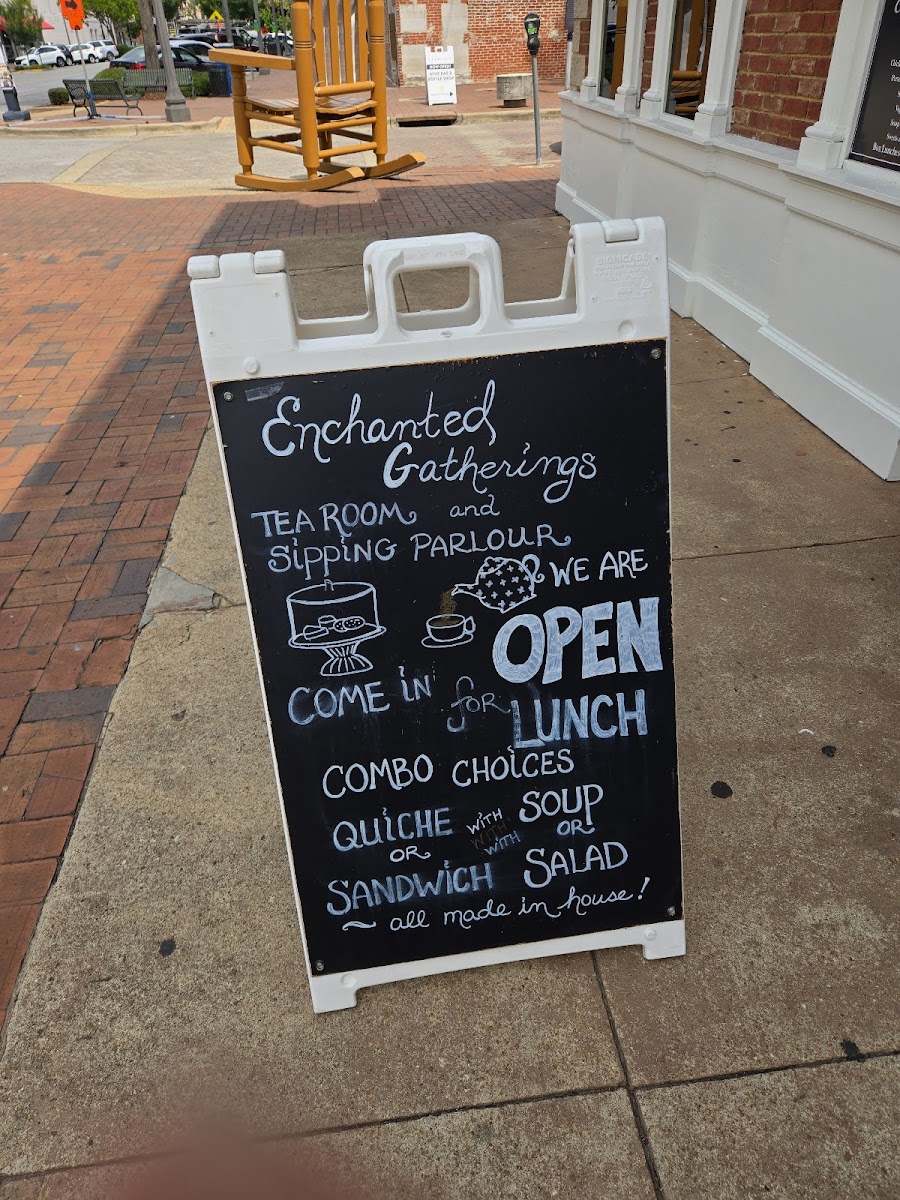 Enchanted
Gatherings
TEA ROOM and
SIPPING PARLOUR
WE ARE
OPEN
COME IN for
LUNCH
COMBO CHOICES
QUICHE WITH SOUP
OR WITH OR
SANDWICH WITH SALAD
~ all made in house!
SIGNICADE
NOW OPEN